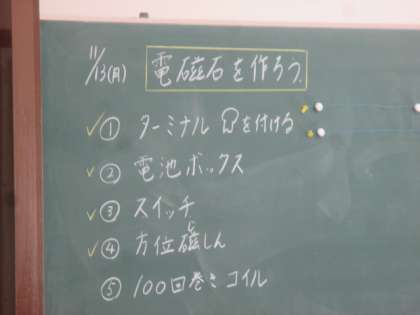 11/13(月) 電磁石を作ろう.
✓ ① ターミナル を付ける
✓ ② 電池ボックス
✓ ③ スイッチ
✓ ④ 方位磁しん
⑤ 100回巻きコイル